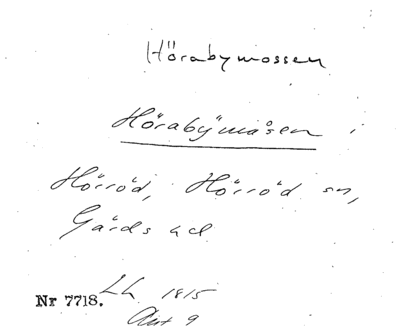 Hörabymossen
Hörabymåsen i
Hörröd, Hörröd sn,
Gärds hd
Nr 7718. Lh 1815
Akt 9